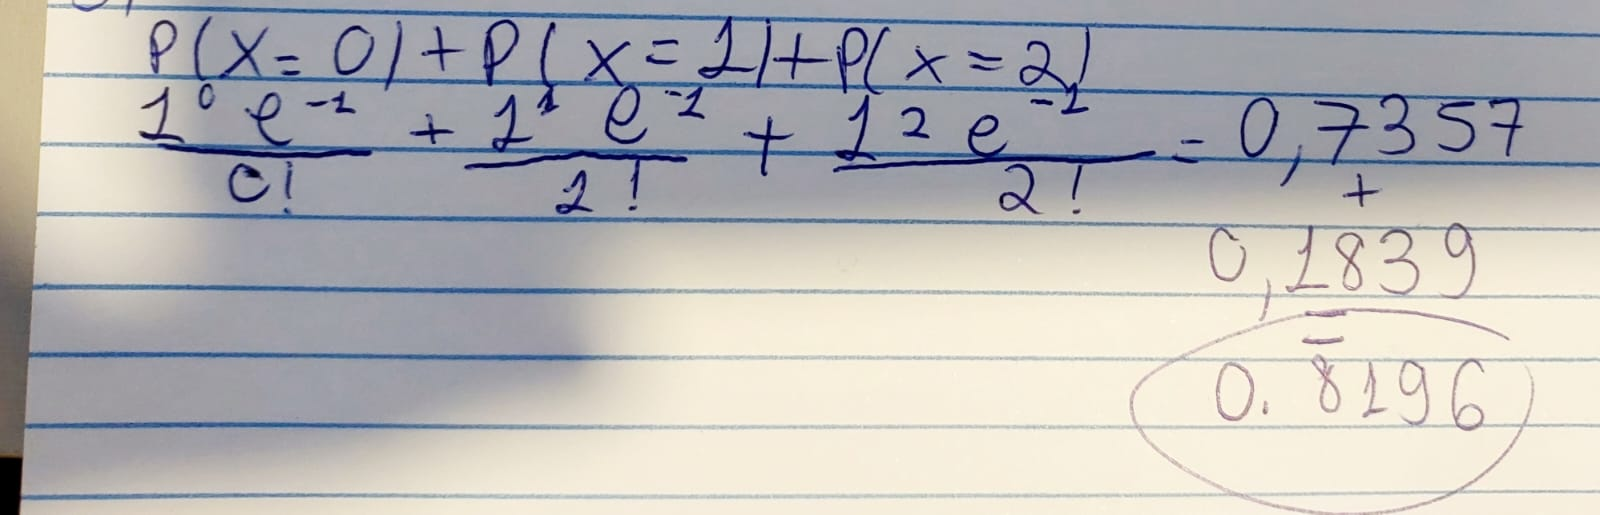 P(X=0)+P(x=1)+P(x=2)
1⁰ e⁻¹ + 1¹ e⁻¹ + 1² e⁻¹ = 0,7357
0! 1! 2! +
0,1839
=
0.8196